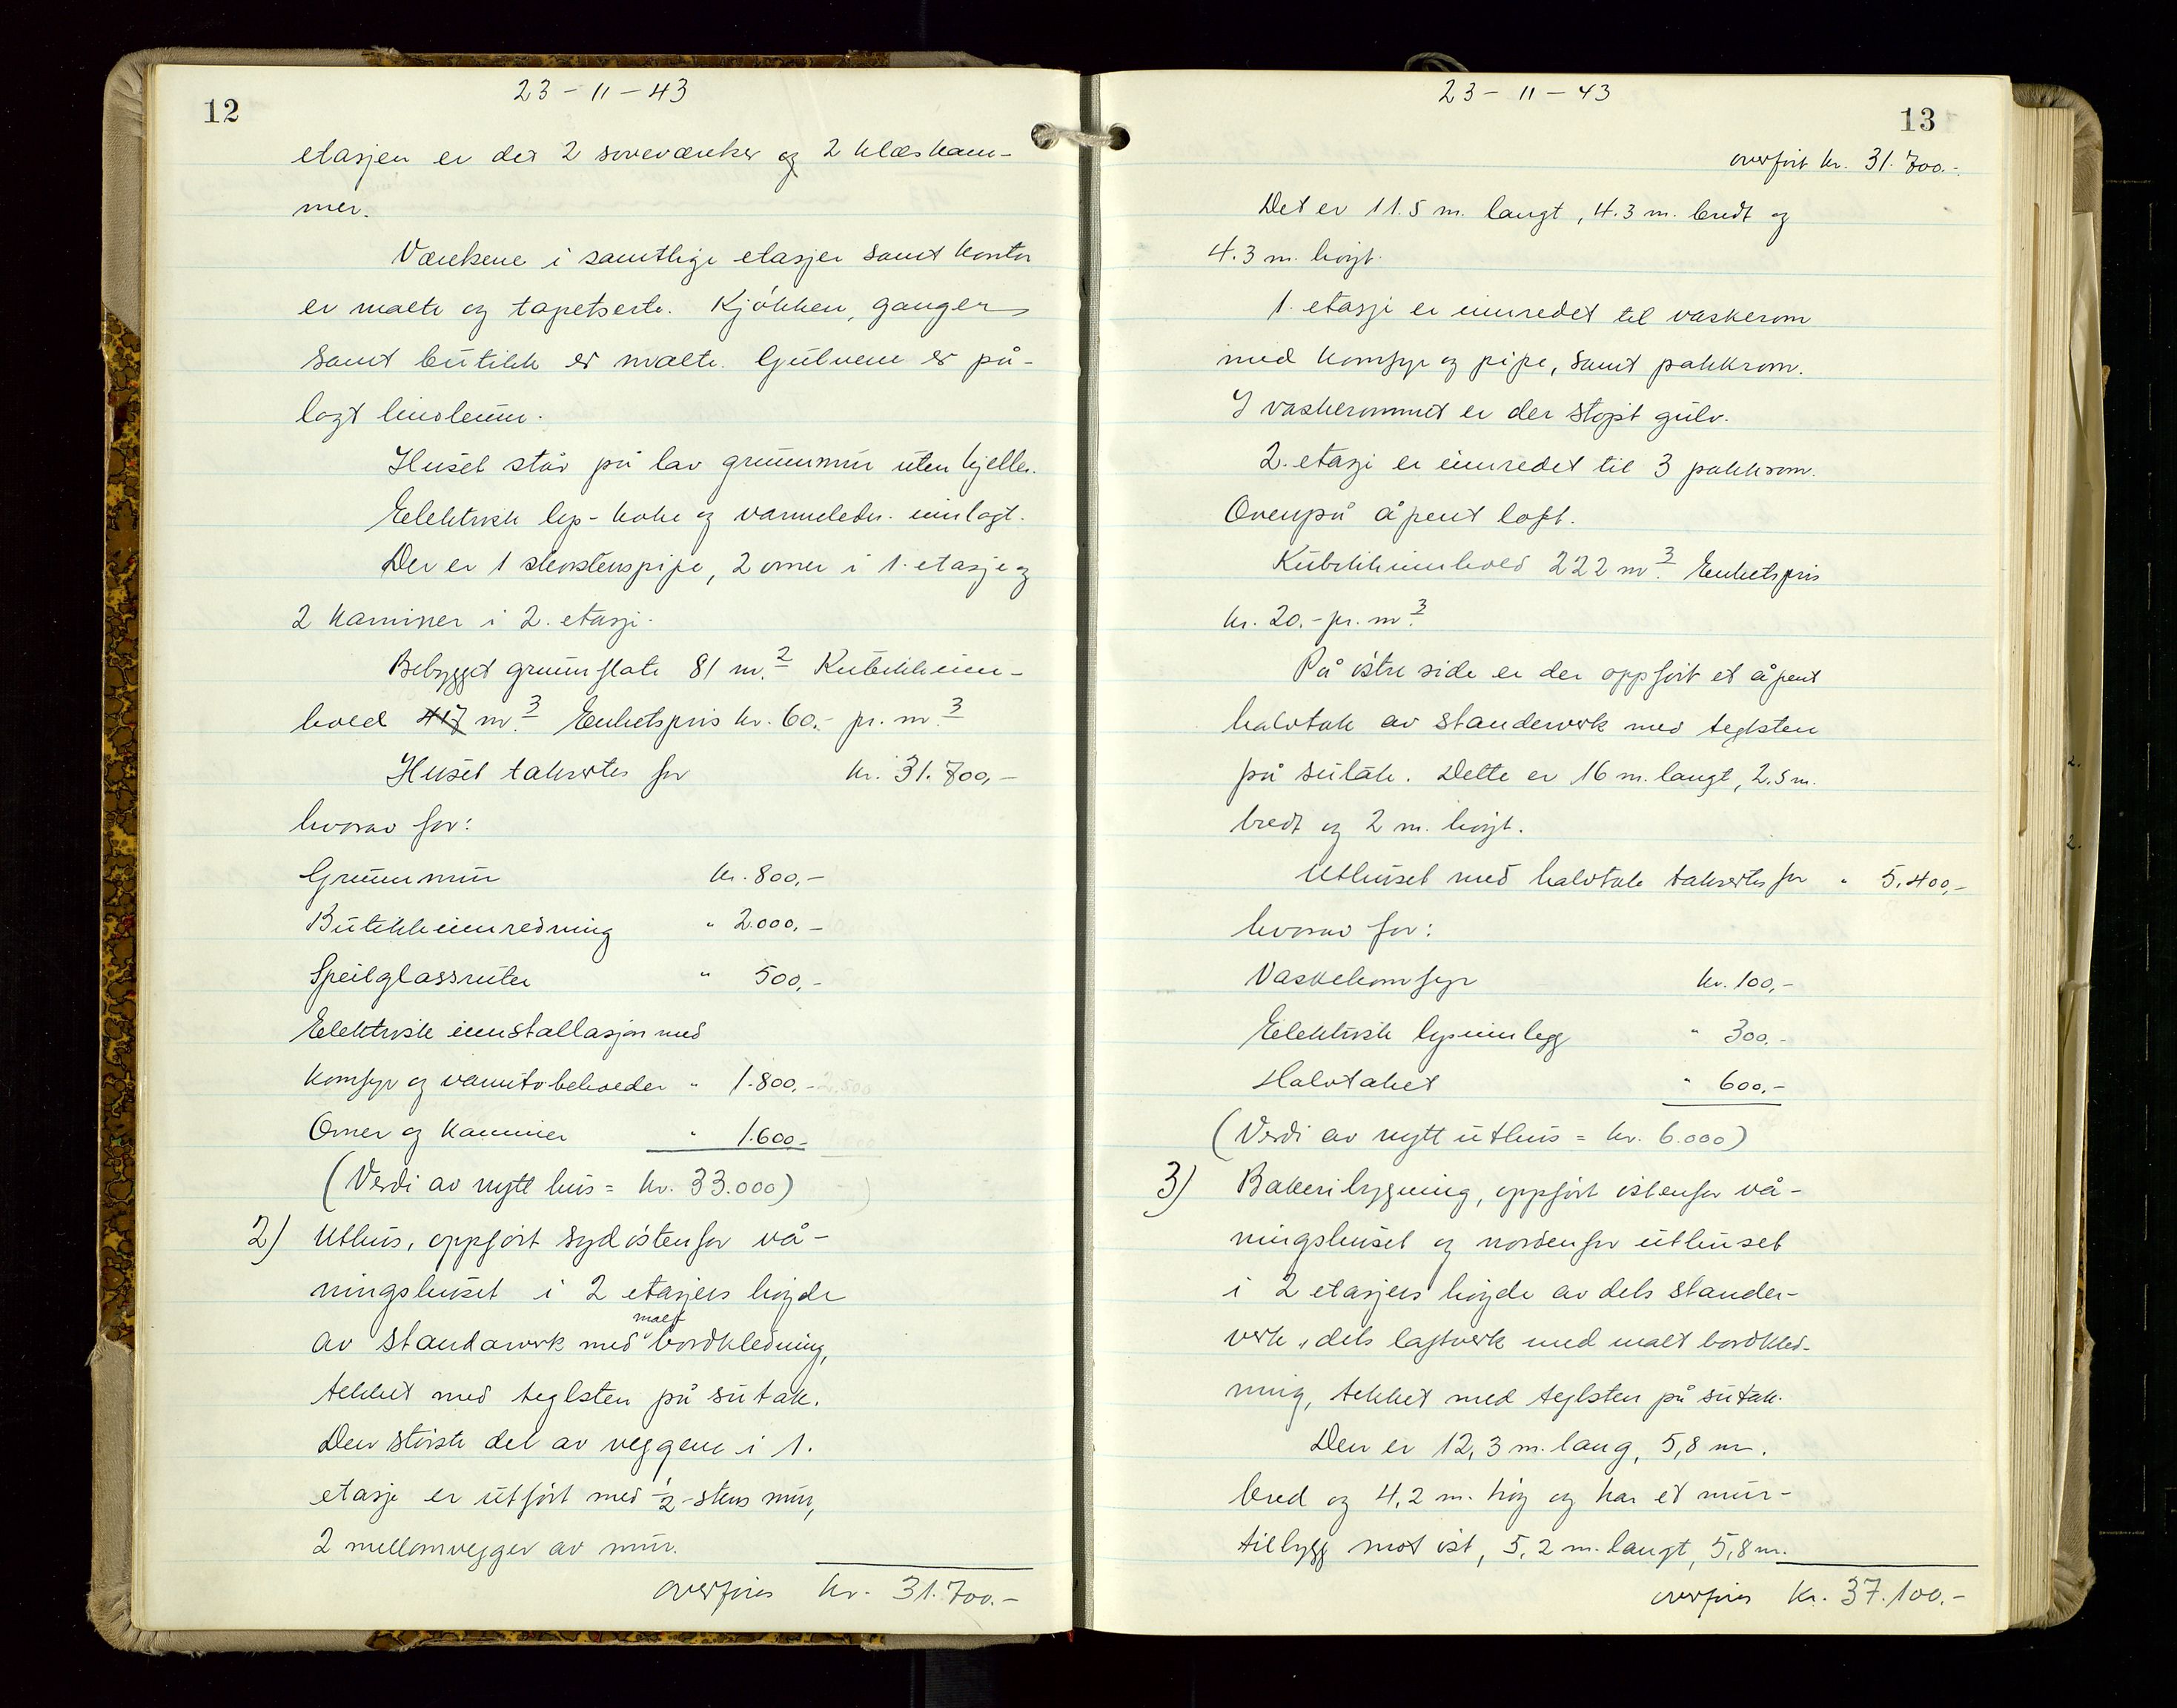 12
23 - 11 - 43
etasjen er der 2 soveværelser og 2 klæskam-
mer.
Værelsene i samtlige etasjer samt kontor
er malte og tapetserte. Kjøkken, ganger
samt butikk er malte. Gulvene er på-
lagt linoleum.
Huset står på lav grunnmur uten kjeller.
Elektrisk lys- koke og varmeledn. innlagt.
Der er 1 skorstenspipe, 2 ovner i 1. etasje og
2 kaminer i 2. etasje.
Bebygget grunnflate 81 m.² Kubikkinn-
hold 417 m.³ Enhetspris kr. 60.- pr. m.³
Huset takseres for kr. 31.700,-
hvorav for:
Grunnmur kr. 800,-
Butikkinnredning " 2.000,-
Speilglassruter " 500,-
Elektrisk innstallasjon med
komfyr og vanntv.beholder " 1.800,-
Ovner og kaminer " 1.600,-
(Verdi av nytt hus = kr. 33.000)
2) Uthus, oppført sydøstenfor vå-
ningshuset i 2 etasjers høyde
av standarverk med malt bordkledning,
tekket med teglsten på sutak.
Den største del av veggene i 1.
etasje er utført med ½-stens mur,
2 mellomvegger av mur.
overføres kr. 31.700.-
23 - 11 - 43
13
overført kr. 31.700.-
Det er 11.5 m. langt, 4.3 m. bredt og
4.3 m. høyt.
1. etasje er innredet til vaskerom
med komfyr og pipe, samt pakkrom.
I vaskerommet er der støpt gulv.
2. etasje er innredet til 3 pakkrom.
Ovenpå åpent loft.
Kubikkinnhold 222 m.³ Enhetspris
kr. 20.- pr. m.³
På østre side er der oppført et åpent
halvtak av standerverk med teglsten
på sutak. Dette er 16 m. langt, 2,5 m.
bredt og 2 m. høyt.
Uthuset med halvtak takseres for " 5.400,-
hvorav for:
Vaskekomfyr kr. 100,-
Elektrisk lysinnlegg " 300,-
Halvtaket " 600,-
(Verdi av nytt uthus = kr. 6.000)
3) Bakeribygning, oppført østenfor vå-
ningshuset og nordenfor uthuset
i 2 etasjers høyde av dels stander-
verk, dels laftverk med malt bordkled-
ning, tekket med teglsten på sutak.
Den er 12,3 m. lang, 5,8 m.
bred og 4,2 m. høy og har et mur-
tilbygg mot øst, 5,2 m. langt, 5,8 m.
overføres kr. 37.100.-